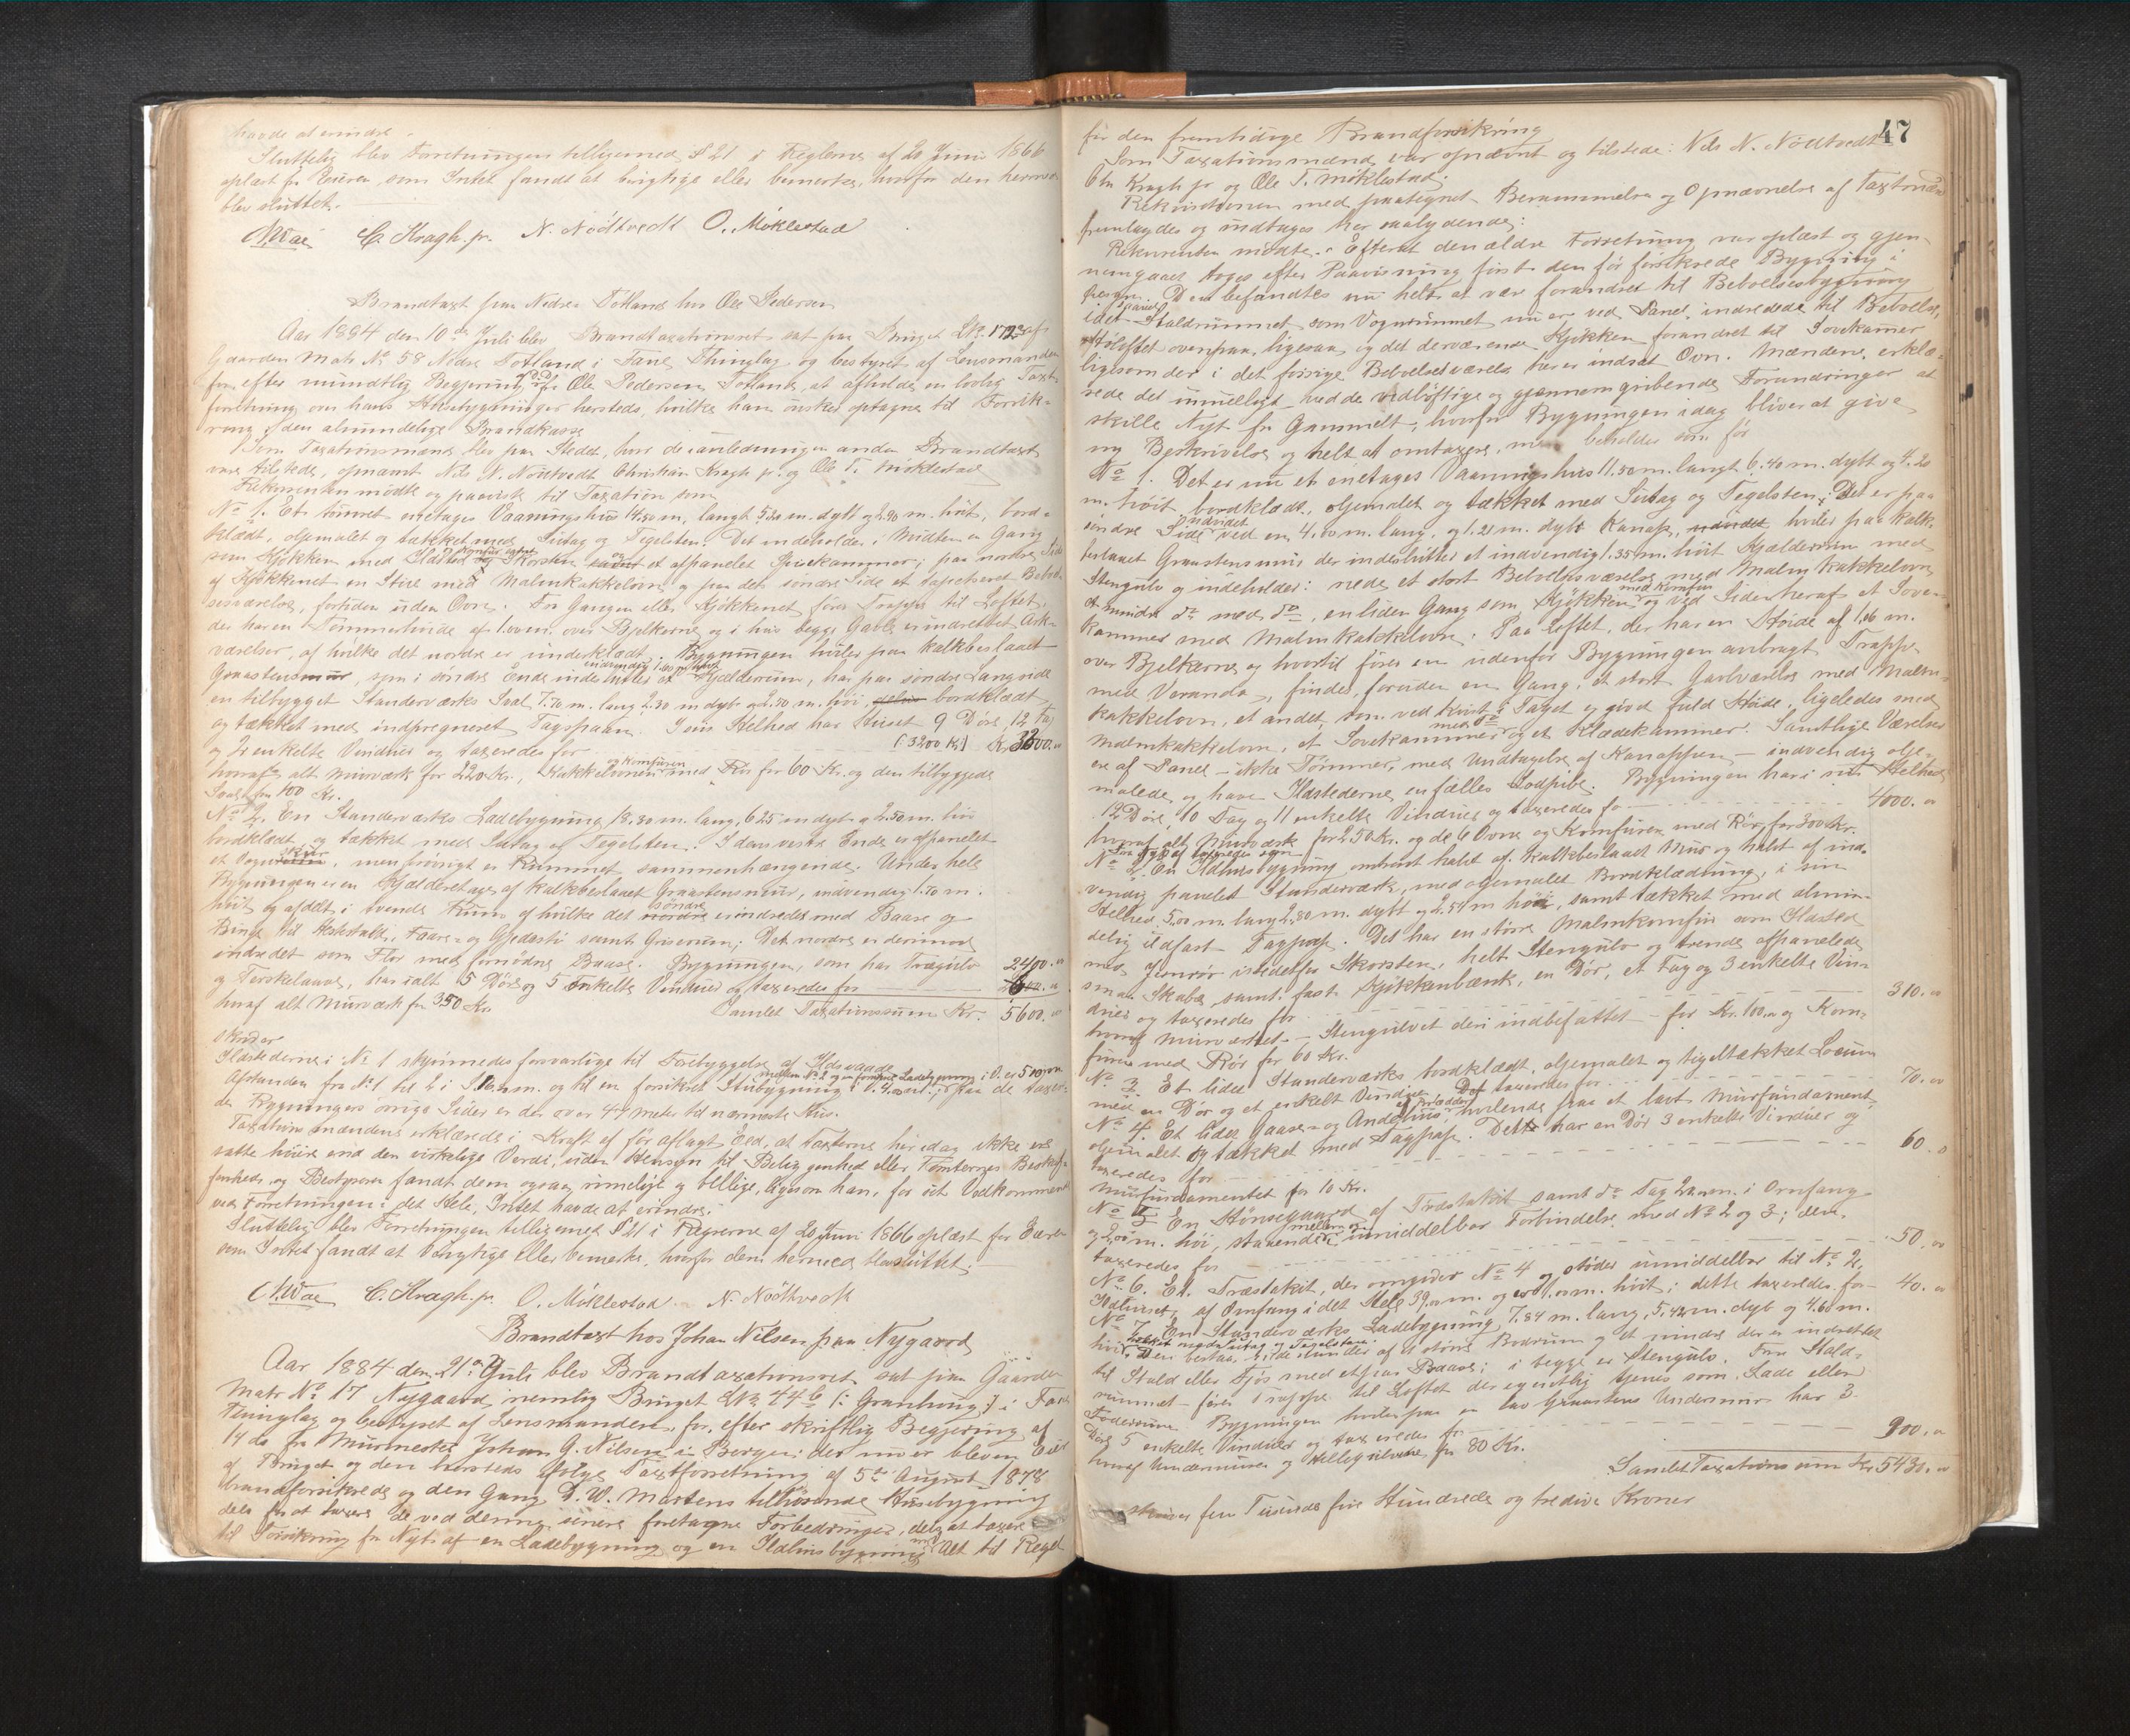 havde at erindre.
Sluttelig blev Forretningen tilligemed § 21 i Reglerne af 20 Juni 1866
oplæst for Eieren, som Intet fandt at berigtige eller bemærke, hvorfor den hermed
blev sluttet.
C. Kragh jr. N. Nödtvedt O. Möklestad
Brandtaxt paa Nedre Totland hos Ole Pedersen
Aar 1884 den 10de Juli blev Brandtaxationsret sat paa Bruget LNo. af
Gaarden Matr No 58 Nedre Totland i Fane Thinglag og bestyret af Lensmanden
for, efter mundtlig Begjering af Ole Pedersen Totland, at afholde en lovlig Taxt
forretning over hans Husebygninger hersteds, hvilke han ønsker optagne til Forsik-
ring i den almindelige Brandkasse
Som Taxationsmænd blev paa Stedet, hvor de i anledningen anden Brandtaxt
vare tilstede, opnævnt Nils N. Nödtvedt Christian Kragh jr. og Ole T. Möklestad
Rekvirenten mödte og paaviste til Taxation som
No 1. Et tömret enetages Vaaningshus 14.80 m. langt 5.20 m. dybt og 2.90 m. höit, bord-
klædt, oljemalet og tækket med Sutag og Tegelsten. Det indeholder i Midten en Gang
som Kjökken med Ildsted og Skorsten og et afpanelet Spisekammer; paa nordre Side
af Kjökkenet en Stue med Malmkakkelovn og paa den söndre Side et tapetseret Beboel-
sesværelse, fortiden uden Ovn. Fra Gangen eller Kjökkenet förer Trappe til Loftet,
der har en Tömmerhöide af 1.00 m. over Bjelkerne og i hvis begge Gavle er indrettet Ark-
værelser, af hvilke det nordre er underklædt. Bygningen hviler paa kalkbeslaaet
Graastensmur, som i söndre Ende indeslutter et Kjælderrum, har paa söndre Langside
en tilbygget Standerværks Sval 7.70 m. lang 2.30 m dyb og 2.50 m. höi, bordklædt
og tækket med indpregneret Tagspaan. I sin Helhed har Huset 9 Döre, 12 Fag
og 2 enkelte Vinduer og taxeredes for (3200 Kr.) Kr. 3200.00
hvoraf alt Murværk for 220 Kr., Kakkelovnen og Komfuren med Rör for 60 Kr. og den tilbyggede
Sval for 100 Kr.
No 2. En Standerværks Ladebygning 18.80 m. lang, 6.25 m dyb og 2.50 m. höi
bordklædt og tækket med Sutag og Tegelsten. I dens vestre Ende er afpanelet
et Vognskur, men forövrigt er Rummet sammenhængende. Under hele
Bygningen er en Kjælderetage af kalkbeslaaet Graastensmur, indvendig 1.70 m.
höit og afdelt i tvende Rum af hvilke det söndre er indredet med Baase og
Binge til Hestestald, Faare- og Gjedesti samt Griserum; Det nordre er derimod
indredet som Flor med fornödne Baase. Bygningen, som har Trægulv
og Torskelaave, har ialt 5 Döre og 5 enkelte Vinduer og taxeredes for 2400.00
hvoraf alt Murværk for 350 Kr. Samlet Taxationssum Kr. 5600.00
Ildstederne i No 1 skjönnedes forsvarlige til Forebyggelse af Ildsvaade
de Bygningers övrige Sider er der over 47 meter til nærmeste Hus.
Taxationsmændene erklærede i Kraft af för aflagt Eed, at Taxterne her idag ikke ere
satte höiere end den virkelige Værdi, uden Hensyn til Beliggenhed eller Tomternes Beskaf-
fenhed, og Bestyreren fandt dem ogsaa rimelige og billige, ligesom han, for sit Vedkommende
ved Forretningen i det Hele, Intet havde at erindre.
Sluttelig blev Forretningen tilligemed § 21 i Reglerne af 20 Juni 1866 oplæst for Eieren
som Intet fandt at berigtige eller bemærke, hvorfor den hermed blev sluttet.
C. Kragh jr. O. Möklestad N. Nödtvedt
Brandtaxt hos Johan Nilsen paa Nygaard
Aar 1884 den 21de Juli blev Brandtaxationsret sat paa Gaarden
Matr No 17 Nygaard, nemlig Bruget LNo 44 b (: Granhaug :) i Fane
Thinglag og bestyret af Lensmanden, for, efter skriftlig Begjering af
14 ds. fra Murmester Johan G. Nilsen i Bergen der nu er bleven Eier
af Bruget og den hersteds ifölge Taxtforretning af 5te August 1878
brandforsikrede og den Gang D. W. Martens tilhörende Husebygning
dels for at taxere de ved denne senere foretagne Forbedringer, dels at taxere
til Forsikring for Nyt af en Ladebygning og en Ildhusbygning Alt til Regel
47
for den fremtidige Brandforsikring
Som Taxationsmænd var opnævnt og tilstede: Nils N. Nödtvedt
Chr Kragh jr og Ole T. Möklestad.
Rekvisitionen med paategnet Berammelse og Opnævnelse af Taxtmænd
fremlagdes og indtages her saalydende:
Rekvirenten mödte. Efterat den ældre Forretning var oplæst og gjen-
nemgaaet toges efter Paavisning först den för forsikrede Bygning i
Den befandtes nu helt at være forandret til Beboelsesbygning
idet Staldrummet som Vognrummet nu er ved Panel indredede til Beboelse,
Höloftet ovenpaa ligesaa og det derværende Kjökken forandret til Sovekamer
ligesom der i det forrige Beboelsesværelse her er indsat Ovn. Mændene erklæ-
rede det umueligt ved de vidlöftige og gjennemgribende Forandringer at
skille Nyt fra Gammelt, hvorfor Bygningen idag bliver at give
ny Beskrivelse og helt at omtaxere, men beholder som för
No 1. Det er nu et enetages Vaaningshus 11.50 m. langt 6.40 m. dybt og 4.20
m. höit, bordklædt, oljemalet og tækket med Sutag og Tegelsten; Det er paa
söndre Side udvidet ved en 4.00 m. lang, og 1.21 m. dybt Kanap, hviler paa kalk-
beslaaet Graastensmur der indeslutter et indvendig 1.35 m. höit Kjælderrum med
Stengulv og indeholder: nede et stort Beboelsesværelse med Malm kakkelovn
et mindre do med do, en liden Gang som Kjökken med Komfur og ved Siden heraf et Sove-
kammer med Malmkakkelovn. Paa Loftet, der har en Höide af 1.06 m.
over Bjelkerne og hvortil föres en udenfor Bygningen anbragt Trappe
med Veranda, findes, foruden en Gang, et stort Gavlværelse med Malm-
kakkelovn, et andet, som ved Kvist i Taget er givet fuld Höide, ligeledes med
Malmkakkelovn, et Sovekammer med do og et Klædekammer. Samtlige Værelser
ere af Panel - ikke Tömmer, med Undtagelse af Kanappen - indvendig olje-
malede og have Ildstederne en fælles Lodpibe. Bygningen har i sin Helhed
12 Döre, 10 Fag og 11 enkelte Vinduer og taxeredes for 4000.00
hvoraf alt Murværk for 250 Kr. og de 6 Ovne og Komfuren med Rör for 300 Kr.
No 2. En Ildhusbygning omtrent halvt af kalkbeslaaet Mur og halvt af ind-
vendig panelet Standerværk, med oljemalet Bordklædning, i sin
Helhed 5.00 m. lang 2.80 m. dybt og 2.54 m höi, samt tækket med almin-
delig ildfast Tagpap. Det har en större Malmkomfur som Ildsted
med Jernrör istedetfor Skorsten, helt Stengulv og tvende afpanelede
smaa Skabe, samt fast Kjökkenbænk, en Dör, et Fag og 3 enkelte Vin-
duer og taxeredes for 310.00
hvoraf Murværket - Stengulvet deri indbefattet - for Kr. 100.00 og Kom-
furen med Rör for 60 Kr.
No 3. Et lidet Standerværks bordklædt, oljemalet og tegltækket Locum
med en Dör og et enkelt Vindue taxeredes for 70.00
No 4. Et lidet Gaase- og Andehus hvilende paa et lavt Murfundament
oljemalet og tækket med Tagpap. Dette har en Dör 3 enkelte Vinduer og
taxeredes for 60.00
Murfundamentet for 10 Kr.
No 5. En Hönsegaard af Træstakit samt do Tag 22.00 m. i Omfang
og 2.00 m. höi, staaende i umiddelbar Forbindelse med No 2 og 3; den
taxeredes for 50.00
No 6. Et Træstakit, der omgiver No 4 og stöder umiddelbar til No 2,
Ildhuset, af Omfang i det Hele 39.00 m. og 1.00 m. höit; dette taxeredes for 40.00
No 7. En Standerværks Ladebygning 7.84 m. lang, 5.42 m. dyb og 4.60 m.
höi. Den bestaar nede af et större Bodrum og et mindre der er indrettet
til Stald eller Fjös med et Par Baase; i begge er Stengulv. Fra Stald-
rummet förer Trappe til Loftet der egentlig tjener som Lade eller
Foderrum. Bygningen hviler paa en lav Graastens Undermur har 3
Döre 5 enkelte Vinduer og taxeredes for 900.00
hvoraf Undermuren og Hellegulvene for 80 Kr.
Samlet Taxationssum Kr 5430.00
skriver fem Tusinde fire Hundrede og tredive Kroner